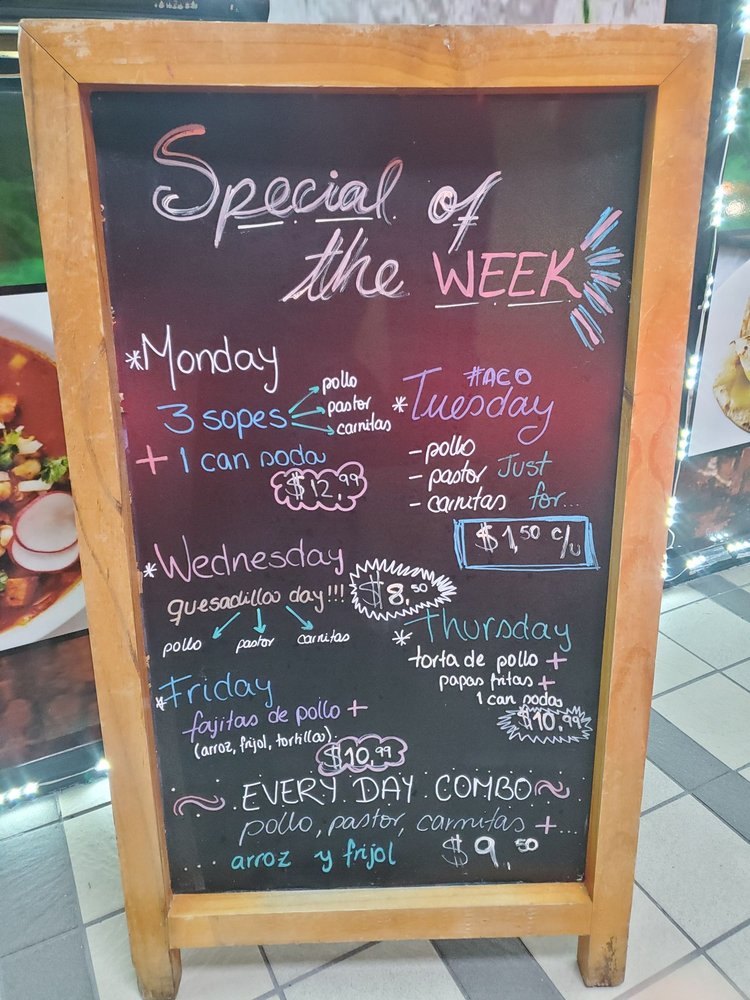 Special of
the WEEK
*Monday
3 sopes
pollo
pastor
carnitas
+ 1 can soda
$12,99
#ACO
*Tuesday
- pollo
- pastor
- carnitas
Just
for...
$1,50 c/u
*Wednesday
quesadillas day!!!
$8,50
pollo pastor carnitas
*Thursday
torta de pollo +
papas fritas +
1 can soda
$10,99
*Friday
fajitas de pollo +
(arroz, frijol, tortillas).
$10,99
~ . EVERY DAY COMBO ~
pollo, pastor, carnitas +...
... arroz y frijol $9,50